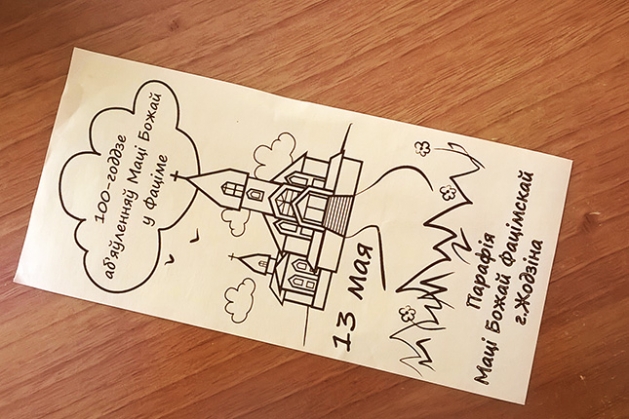 100-годдзе
аб'яўленняў Маці Божай
у Фаціме
13 мая
Парафія
Маці Божай Фацімскай
г.Жодзіна